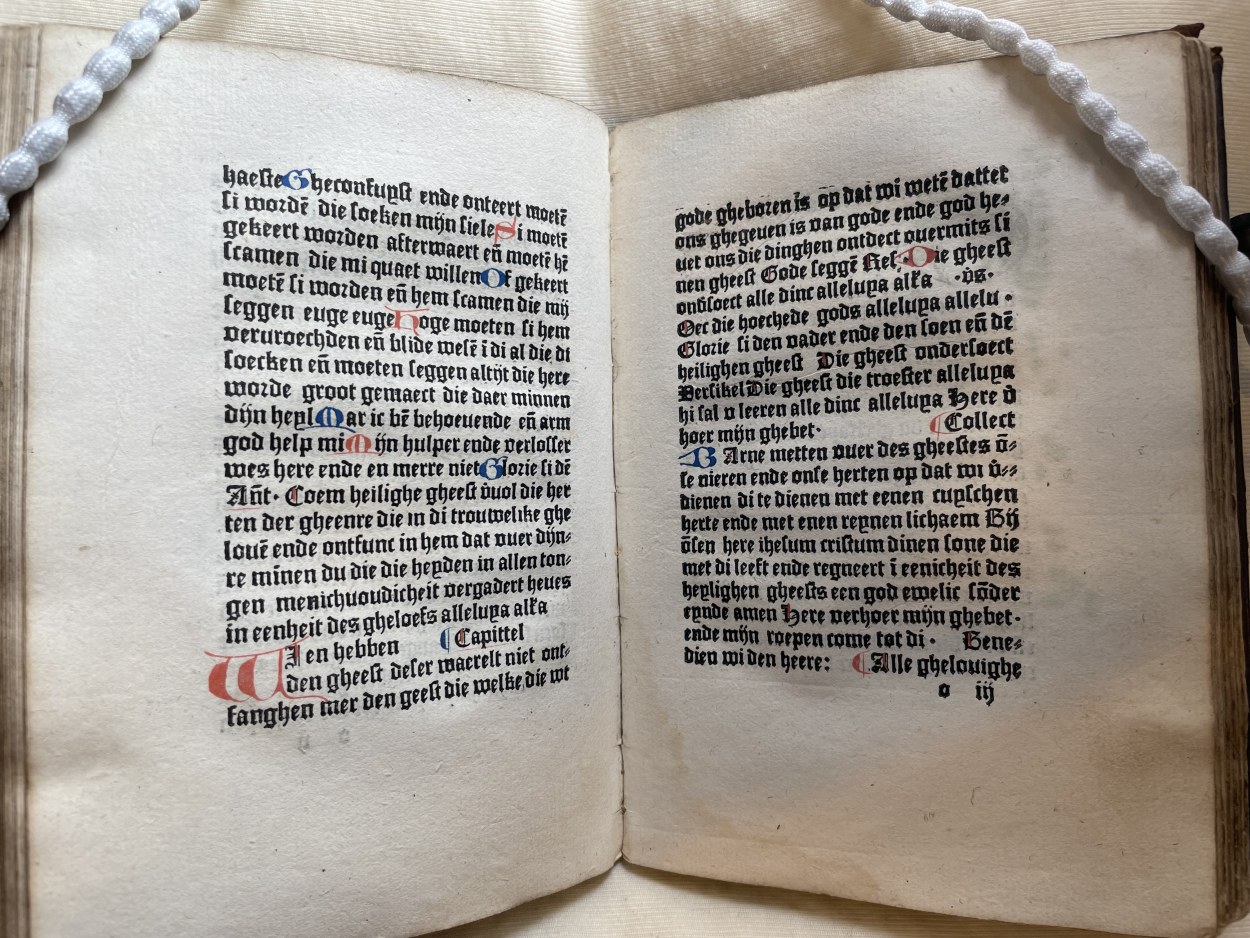 haeste Gheconfuyst ende onteert moetē
si wordē die soeken mijn siele Si moetē
gekeert worden afterwaert eñ moetē hē
scamen die mi quaet willen Of gekeert
moetē si worden eñ hem scamen die mij
seggen euge euge Hoge moeten si hem
veruroechden eñ blide wesē ī di al die di
soecken eñ moeten seggen altijt die here
worde groot gemaect die daer minnen
dijn heyl Mar ic bē behoeuende eñ arm
god help mi Mijn hulper ende verlosser
wes here ende en merre niet Glorie si dē
Añt· Coem heilighe gheest v̄uol die her
ten der gheenre die in di trouwelike ghe
louē ende ontfunc in hem dat vuer dijn⸗
re minen du die die heyden in allen ton⸗
gen menichuoudicheit vergadert heues
in eenheit des gheloefs alleluya alľa
¶Capittel
WIen hebben
den gheest deser waerelt niet ont⸗
fanghen mer den geest die welke die wt
gode gheboren is op dat wi wetē dattet
ons ghegeuen is van gode ende god he⸗
uet ons die dinghen ontdect ouermits sī
nen gheest Gode seggē Res̄· Die gheest
ondsoect alle dinc alleluya alľa ·v̄s·
Oec die hoechede gods alleluya allelu ·
Glorie si den vader ende den soen eñ dē
heilighen gheest Die gheest ondersoect
Versikel Die gheest die troester alleluya
hi sal v leeren alle dinc alleluya Here v̄
hoer mijn ghebet· ¶Collect
BArne metten vuer des gheestes ō⸗
se nieren ende onse herten op dat wi v̄⸗⸗
dienen di te dienen met eenen cuyschen
herte ende met enen reynen lichaem Bij
ōsen here ihesum cristum dinen sone die
met di leeft ende regneert ī eenicheit des
heylighen gheests een god ewelic sōder
eynde amen Here verhoer mijn ghebet·
ende mijn roepen come tot di · Bene⸗
dien wi den heere: ¶Alle ghelouighe
o iij